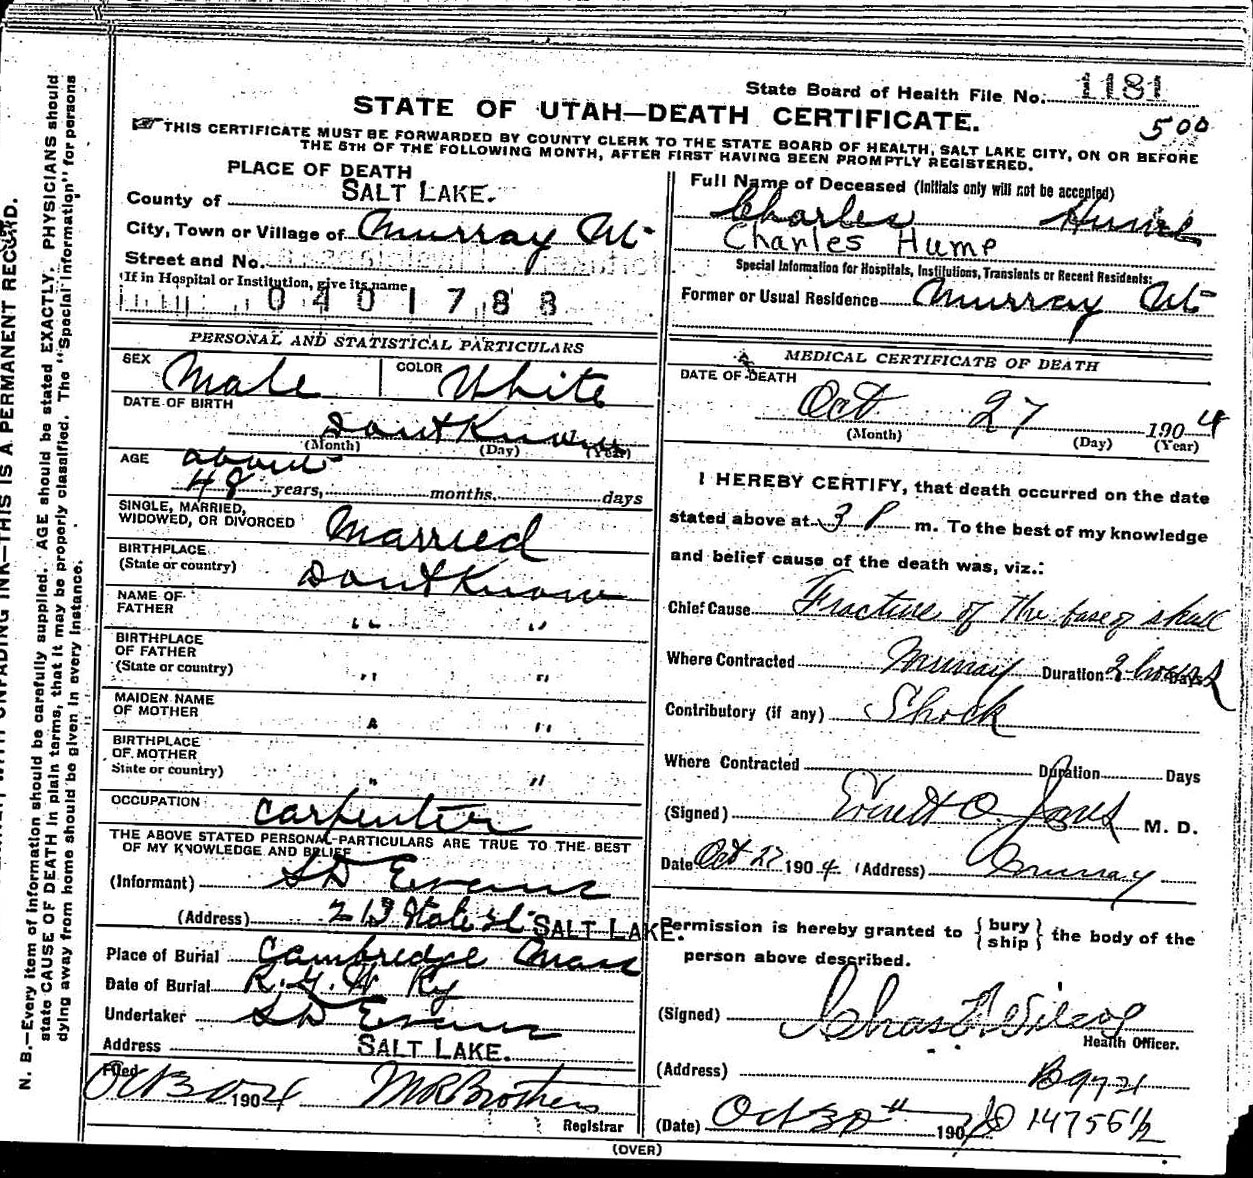 State Board of Health File No. 1181
STATE OF UTAH—DEATH CERTIFICATE.
500
THIS CERTIFICATE MUST BE FORWARDED BY COUNTY CLERK TO THE STATE BOARD OF HEALTH, SALT LAKE CITY, ON OR BEFORE
THE 5TH OF THE FOLLOWING MONTH, AFTER FIRST HAVING BEEN PROMPTLY REGISTERED.
PLACE OF DEATH
County of SALT LAKE.
City, Town or Village of Murray Ut
Street and No.
If in Hospital or Institution, give its name
0401788
PERSONAL AND STATISTICAL PARTICULARS
SEX Male COLOR White
DATE OF BIRTH Dont Know
(Month) (Day) (Year)
AGE about
48 years, months, days
SINGLE, MARRIED,
WIDOWED, OR DIVORCED Married
BIRTHPLACE
(State or country) Dont Know
NAME OF
FATHER " "
BIRTHPLACE
OF FATHER
(State or country) " "
MAIDEN NAME
OF MOTHER " "
BIRTHPLACE
OF MOTHER
State or country) " "
OCCUPATION Carpenter
THE ABOVE STATED PERSONAL PARTICULARS ARE TRUE TO THE BEST
OF MY KNOWLEDGE AND BELIEF
(Informant) S D Evans
(Address) 213 State St SALT LAKE.
Place of Burial Cambredge Mass
Date of Burial R.G.W Ry
Undertaker S D Evans
Address SALT LAKE.
Filed Oct 30 1904 M R Brothers
Registrar
Full Name of Deceased (Initials only will not be accepted)
Charles Hume
Charles Hume
Special Information for Hospitals, Institutions, Transients or Recent Residents:
Former or Usual Residence Murray Ut
MEDICAL CERTIFICATE OF DEATH
DATE OF DEATH
Oct 27 1904
(Month) (Day) (Year)
I HEREBY CERTIFY, that death occurred on the date
stated above at 3 P m. To the best of my knowledge
and belief cause of the death was, viz.:
Chief Cause Fracture of the base of skull
Where Contracted Murray Duration 2 hours Days
Contributory (if any) Shock
Where Contracted Duration Days
(Signed) Everett O. Jones M. D.
Date Oct 27 1904 (Address) Murray
Permission is hereby granted to { bury ship } the body of the
person above described.
(Signed) Chas
Health Officer.
(Address) B9721
(Date) Oct 30th 190 147561/2
(OVER)
N. B.—Every item of information should be carefully supplied. AGE should be stated EXACTLY. PHYSICIANS should
state CAUSE OF DEATH in plain terms, that it may be properly classified. The "Special Information" for persons
dying away from home should be given in every instance.
UNFADING INK—THIS IS A PERMANENT RECORD.